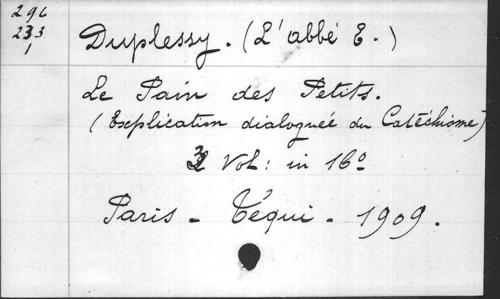 296
233
1
Duplessy. (L'abbé E.)
Le Pain des Petits.
(Explication dialoguée du Catéchisme)
3 Vol: in 16º
Paris - Téqui - 1909.